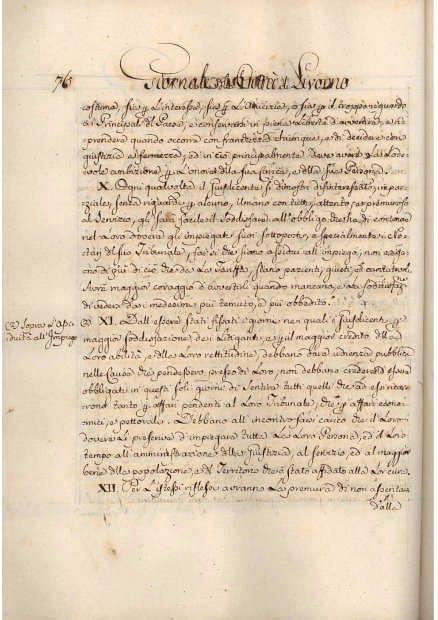 76
Giornale della Città di Livorno
costume, sia p L'interesse, sia p L'Amicizie, o sia p il troppo riguardo
ai Principali di Paese, e conservarsi in piena libertà d'avvertire, e ri-
prendere quando occorre con franchezza chiunque, e di decidere con
giustizia e fermezza, ed in ciò principalmente deve avere La Lode-
vole ambizione p L'onore della sua carica, e della sua Persona.
X. Ogni qualvolta il Jusdicente si dimostri disinteressato, impar-
ziale, senza riguardi p alcuno, Umano con tutti, attento, e premuroso
al Servizio, gli sarà facile il sodisfare all'obbligo che ha di contenere
nel Loro dovere gli impiegati suoi sottoposti, e specialmente i No-
tari del suo Tribunale, sia che siano assidui all'impiego, non esiga-
no di più di ciò che de La Tariffe, siano pazienti, quieti, e caritatevoli.
Avrà maggior coraggio d'avvertirli quando mancano, e La sodisfazne
di vedere da' medesimi più temuto, e più obbedito.
Sopra L'Assi
duità all'Impiego
XI. Dall'essere stati fissati i giorni ne i quali i Jusdicenti p
maggior sodisfazione de i Litiganti, e p il maggior credito della
Loro abilità, e della Loro rettitudine, debbano dare udienza pubblica
nelle Cause che pendessero presso di Loro, non debbano credersi essere
obbligati in questi soli giorni di sentire tutti quelli che ad essi ricor-
rono tanto p affari pendenti al Loro Tribunale, che p affari econo-
mici, e pettorale. Debbano all'incontro farsi carico che il Loro
dovere Li presenza d'impiegare tutta La Loro Persona, ed il Loro
tempo all'amministrazione della Giustizia, al servizio, ed al maggior
bene della popolazione, e del Territorio che è stato affidato alla Lor cura.
XII. Per L'istessi riflessi avranno La premura di non assentarsi
dalla